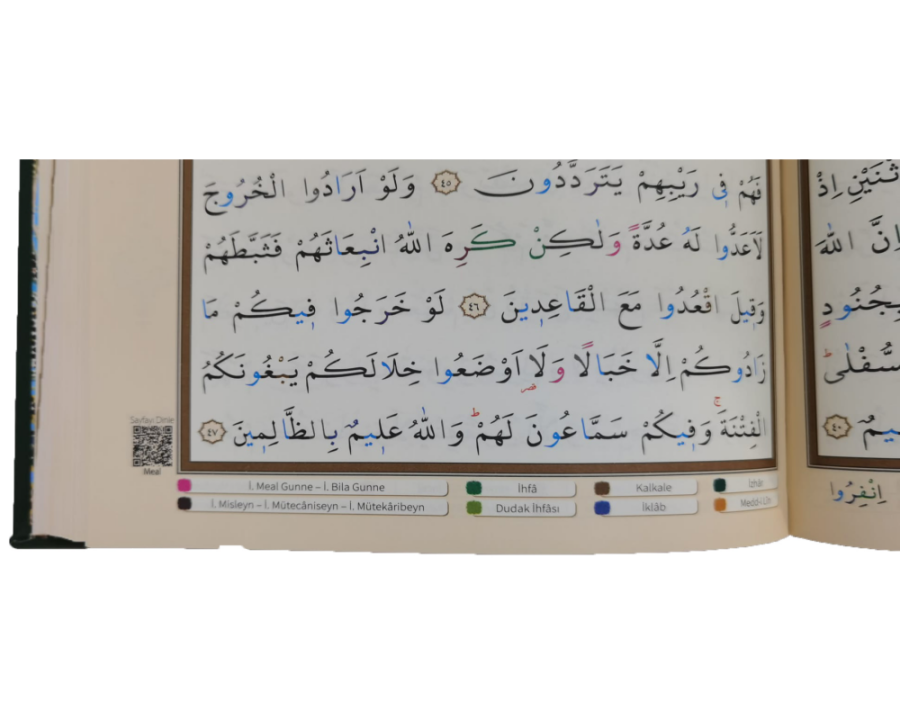 فَهُمْ فٖي رَيْبِهِمْ يَتَرَدَّدُونَ ﴿٤٥﴾ وَلَوْ اَرَادُوا الْخُرُوجَ
لَاَعَدُّوا لَهُ عُدَّةً وَلٰكِنْ كَرِهَ اللّٰهُ انْبِعَاثَهُمْ فَثَبَّطَهُمْ
وَقٖيلَ اقْعُدُوا مَعَ الْقَاعِدٖينَ ﴿٤٦﴾ لَوْ خَرَجُوا فٖيكُمْ مَا
زَادُوكُمْ اِلَّا خَبَالًا وَلَا اَوْضَعُوا خِلَالَكُمْ يَبْغُونَكُمُ
الْفِتْنَةَۚ وَفٖيكُمْ سَمَّاعُونَ لَهُمْؕ وَاللّٰهُ عَلٖيمٌ بِالظَّالِمٖينَ ﴿٤٧﴾
Sayfayı Dinle
Meal
İ. Meal Gunne – İ. Bila Gunne
İhfâ
Kalkale
İzhâr
İ. Misleyn – İ. Mütecâniseyn – İ. Mütekâribeyn
Dudak İhfâsı
İklâb
Medd-i Lîn
اِذْ
اِنَّ اللّٰهَ
بِجُنُودٍ
السُّفْلٰىؕ
﴿٤٠﴾
اِنْفِرُوا